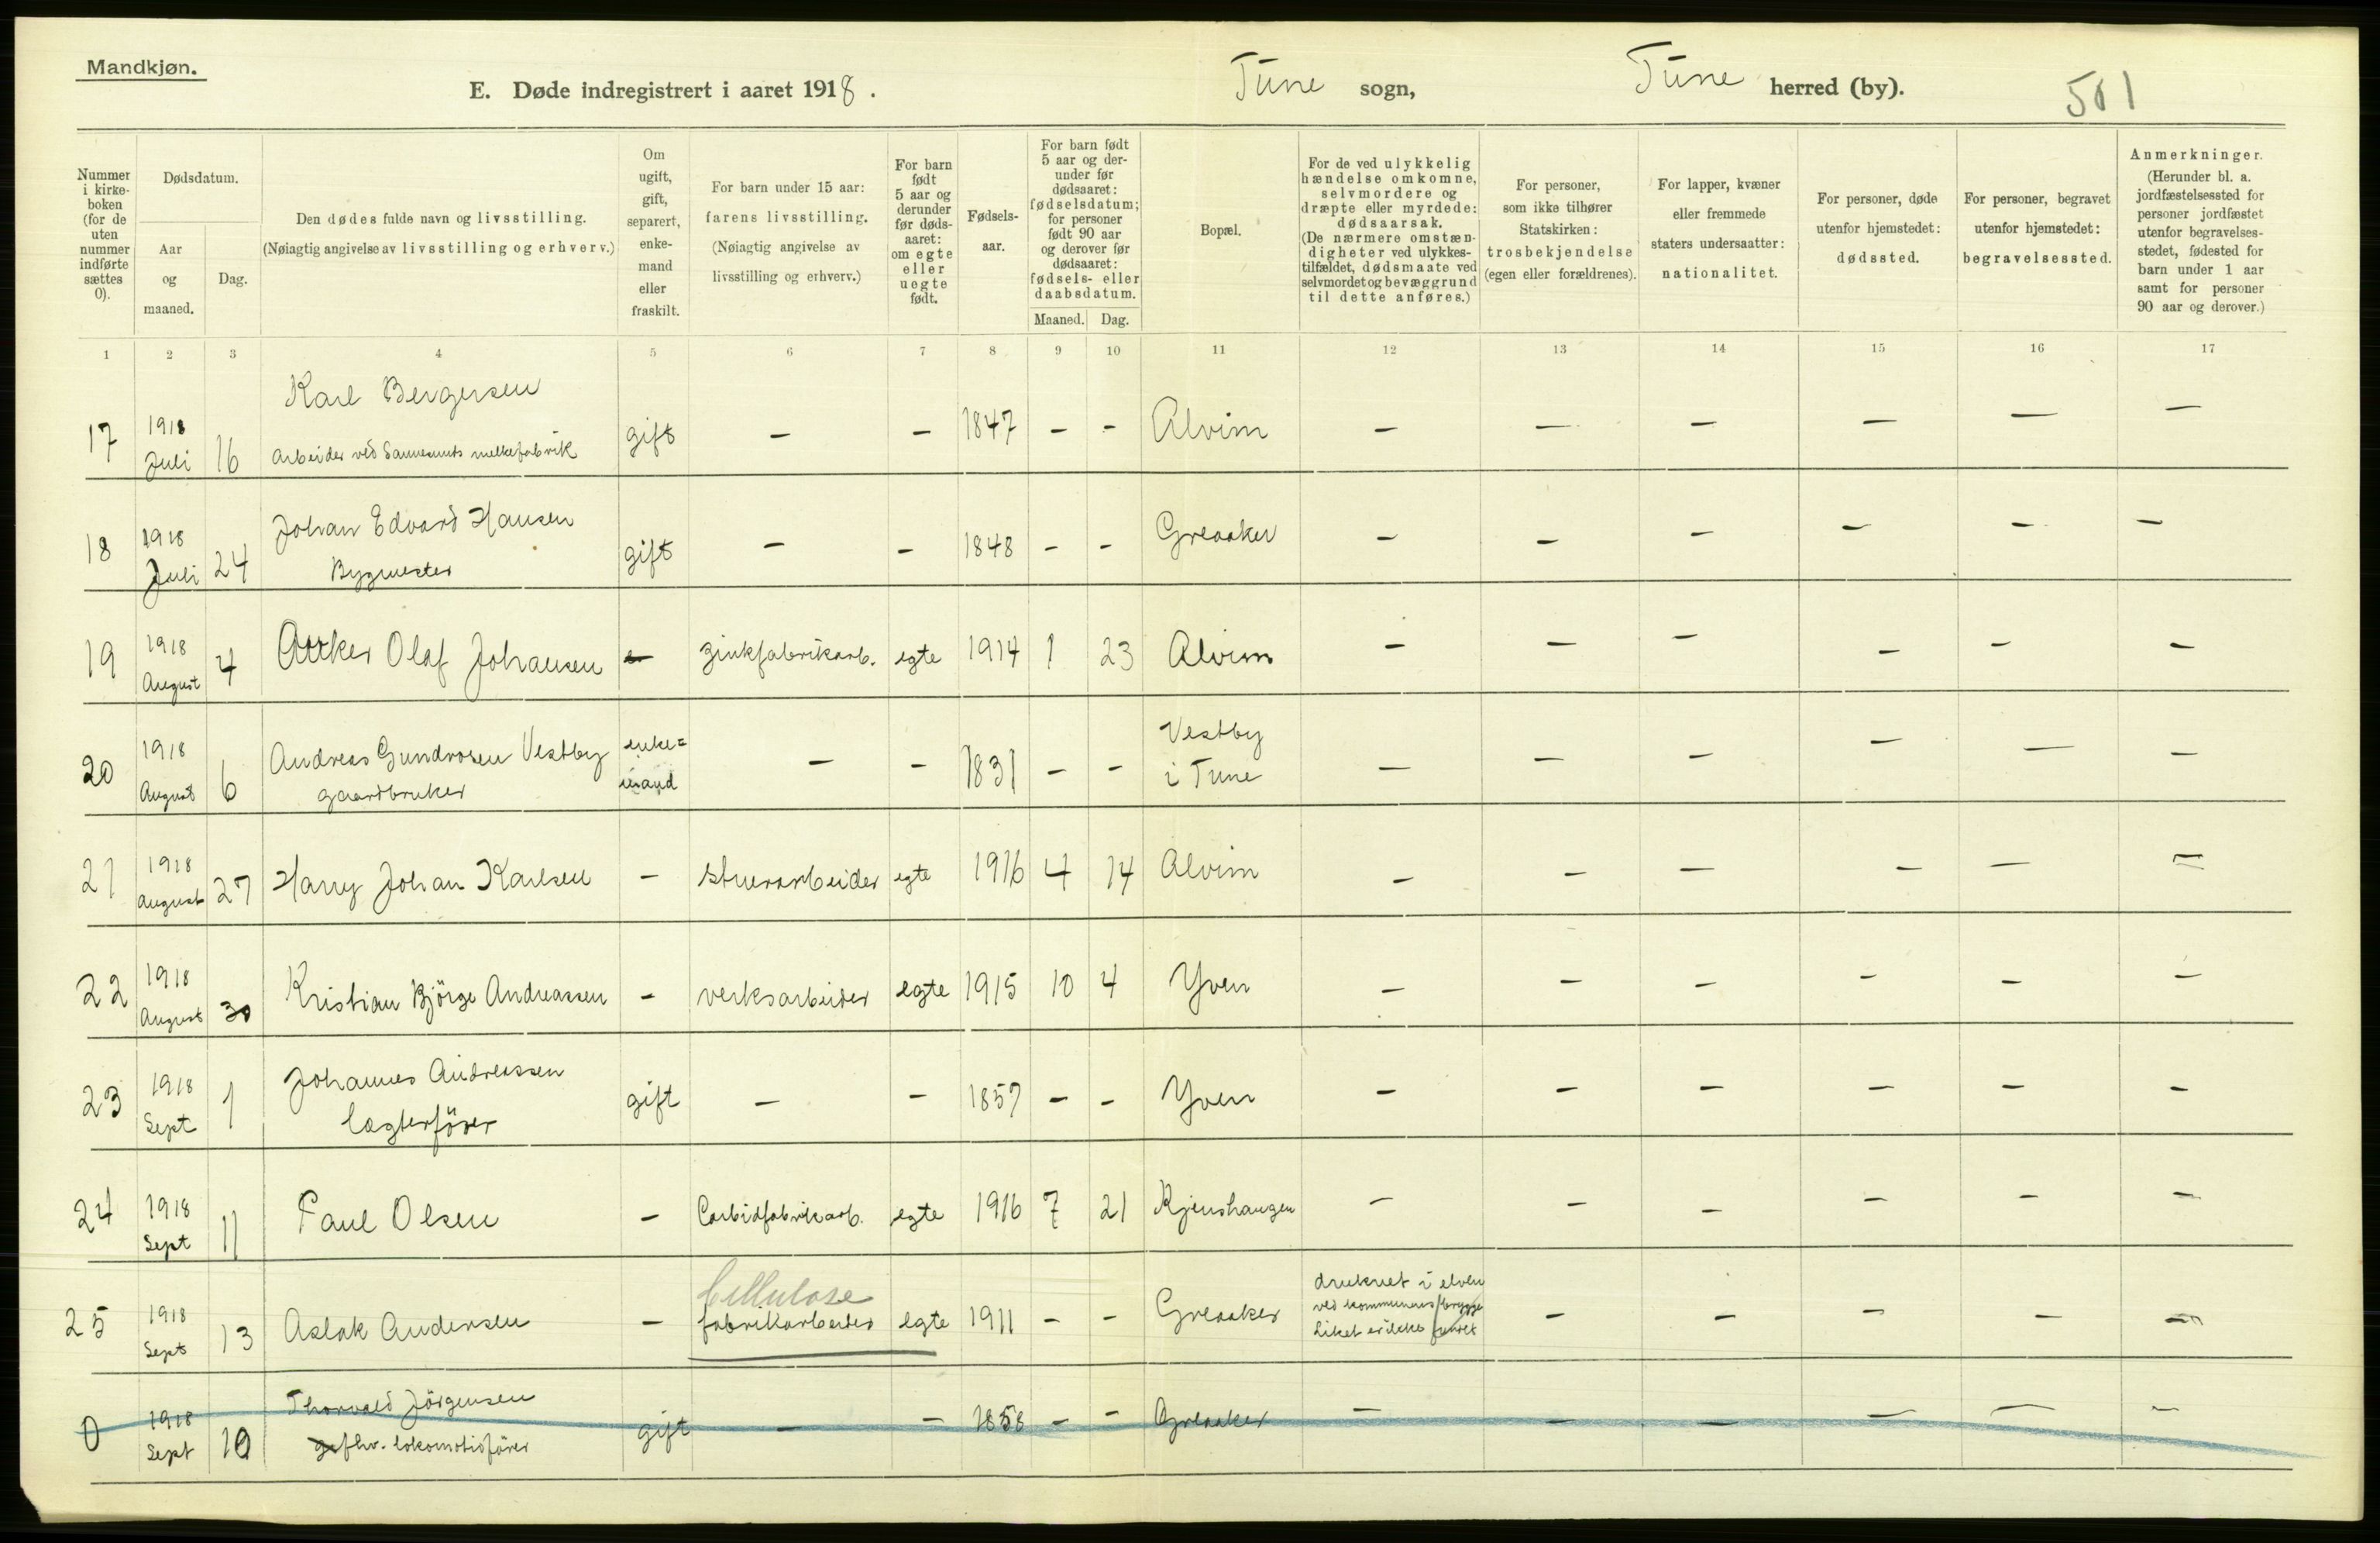 Mandkjøn.
E. Døde indregistrert i aaret 1918. Tune sogn, Tune herred (by). 501
Nummer i kirkeboken (for de uten nummer indførte sættes 0).
Dødsdatum.
Aar og maaned.
Dag.
Den dødes fulde navn og livsstilling.
(Nøiagtig angivelse av livsstilling og erhverv.)
Om ugift, gift, separert, enkemand eller fraskilt.
For barn under 15 aar: farens livsstilling. (Nøiagtig angivelse av livsstilling og erhverv.)
For barn født 5 aar og derunder før dødsaaret: om egte eller uegte født.
Fødselsaar.
For barn født 5 aar og derunder før dødsaaret: fødselsdatum; for personer født 90 aar og derover før dødsaaret: fødsels- eller daabsdatum.
Maaned. Dag.
Bopæl.
For de ved ulykkelig hændelse omkomne, selvmordere og dræpte eller myrdede: dødsaarsak. (De nærmere omstændigheter ved ulykkestilfældet, dødsmaate ved selvmordet og bevæggrund til dette anføres.)
For personer, som ikke tilhører Statskirken: trosbekjendelse (egen eller forældrenes).
For lapper, kvæner eller fremmede staters undersaatter: nationalitet.
For personer, døde utenfor hjemstedet: dødssted.
For personer, begravet utenfor hjemstedet: begravelsessted.
Anmerkninger. (Herunder bl. a. jordfæstelsessted for personer jordfæstet utenfor begravelsesstedet, fødested for barn under 1 aar samt for personer 90 aar og derover.)
1 2 3 4 5 6 7 8 9 10 11 12 13 14 15 16 17
17 1918 Juli 16 Karl Bergersen
Arbeider ved Sannesunds melkefabrik gift – – 1847 – – Alvim – – – – – –
18 1918 Juli 24 Johan Edvard Hansen
Bygmester gift – – 1848 – – Greaaker – – – – – –
19 1918 August 4 Olaf Johansen – Zinkfabrikarb. egte 1914 1 23 Alvim – – – – – –
20 1918 August 6 Andreas Gundrosen Vestby
gaardbruker enke= mand – – 1831 – – Vestby i Tune – – – – – –
21 1918 August 27 Harry Johan Karlsen – stuerarbeider egte 1916 4 14 Alvim – – – – – –
22 1918 August 30 Kristian Björge Andreassen – verksarbeider egte 1915 10 4 Yven – – – – – –
23 1918 Sept 1 Johannes Andreassen
lægterförer gift – – 1857 – – Yven – – – – – –
24 1918 Sept 11 Paul Olsen – Carbidfabrikarb. egte 1916 7 21 Kjenshaugen – – – – – –
25 1918 Sept 13 Aslak Andersen – Cellulose
fabrikarbeider egte 1911 – – Greaaker druknet i elven
ved kommunens brygge
Liket er ikke fundet – – – – –
0 1918 Sept 10 Thorvald Jörgensen
fhv. lokomotivförer gift – – 1858 – – Greaaker – – – – – –